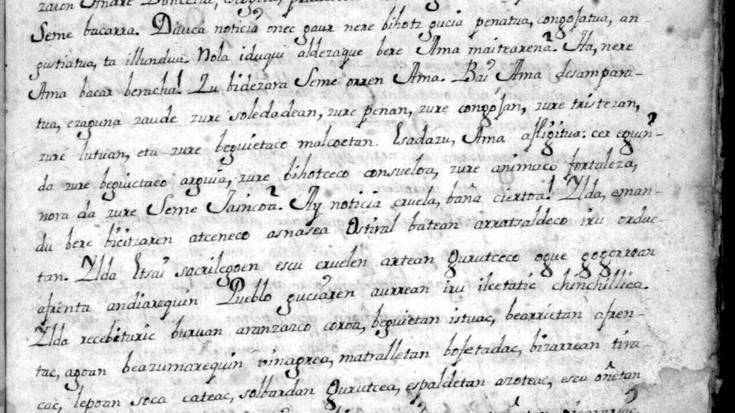 Seme bacarra. Dauca noticia onec gaur nere bihotz gucia penatua, congojatua, an
gustiatua, ta illundua. Nola iduqui aldezaque bere Ama maitearena? Ha, nere
Ama bacar beracha! Zu bidezara Seme orren Ama. Bai Ama desampara-
tua, ezaguna zaude zure soledadean, zure penan, zure congojan, zure tristezan,
zure lutuan, eta zure beguietaco malcoetan. Esadazu, Ama afligitua: cer eguin
da zure beguietaco arguia, zure bihotceco consueloa, zure animaco fortaleza,
nora da zure Seme Jaincoa? Ay noticia cruela, baña ciertoa! Ilda, eman-
du bere bicitzaren atceneco asnasea Ostiral batean arratsaldeco iru ordue-
tan. Ilda Etsai sacrilegoen escu cruelen artean gurutceco ogue gogorroan
afrenta andiarequin Pueblo guciaren aurrean iru ilcetatic chinchillica.
Ilda recebituric buruan aranzazco coroa, beguietan istuac, bearrietan afren-
tac, agoan beazumarequin vinagrea, matralletan bofetadac, bizarrean tira-
cac, lepoan soca cateac, solbardan gurutcea, espaldetan azoteac, escu oñetan